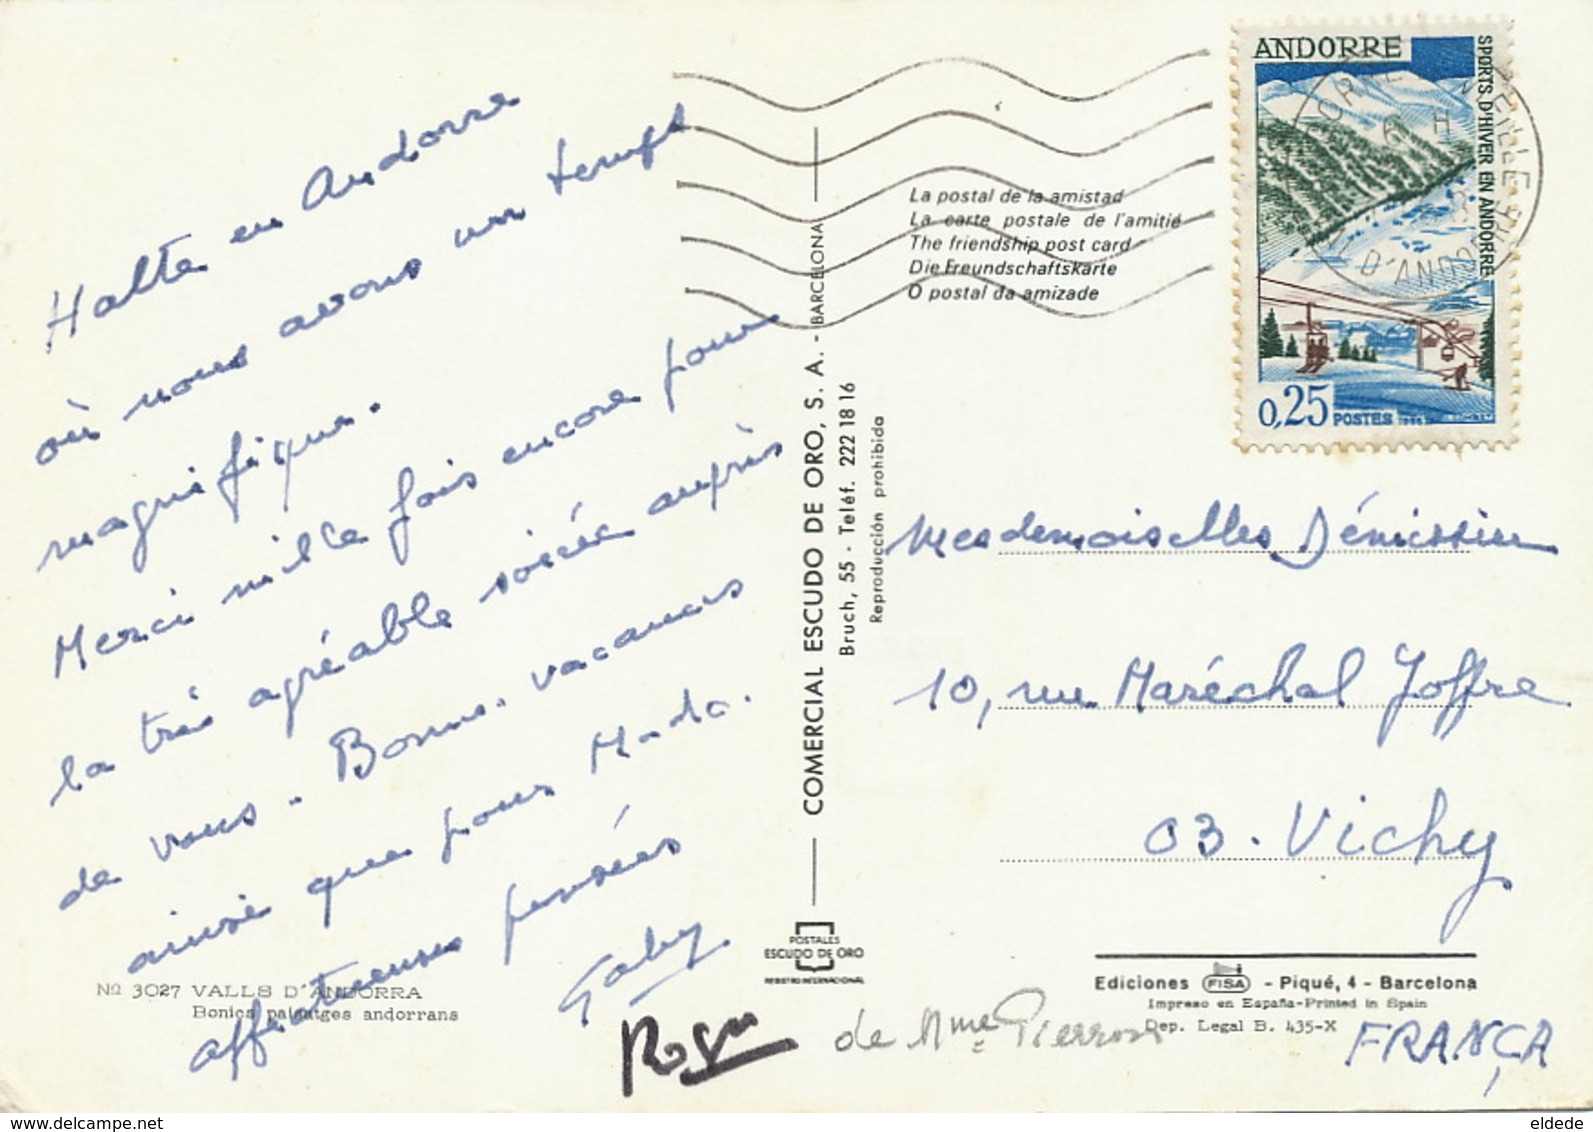 Halte en Andorre
où nous avons un temps
magnifique.
Merci mille fois encore pour
la très agréable soirée auprès
de vous. Bonnes vacances
ainsi que pour Mado.
affectueuses pensées
Gaby
Roger
de Mme Pierron
Nº 3027 VALLS D'ANDORRA
Bonics paisatges andorrans
COMERCIAL ESCUDO DE ORO, S. A. - BARCELONA
Bruch, 55 - Teléf. 222 18 16
Reproducción prohibida
POSTALES
ESCUDO DE ORO
REGISTRO INTERNACIONAL
La postal de la amistad
La carte postale de l'amitié
The friendship post card
Die Freundschaftskarte
O postal da amizade
ANDORRE
SPORTS D'HIVER EN ANDORRE
0,25 POSTES
VIEILLE
D'ANDORRE
Mesdemoiselles
10, rue Maréchal Joffre
03. Vichy
FRANÇA
Ediciones FISA - Piqué, 4 - Barcelona
Impreso en España-Printed in Spain
Dep. Legal B. 435-X
delcampe.net
eldede